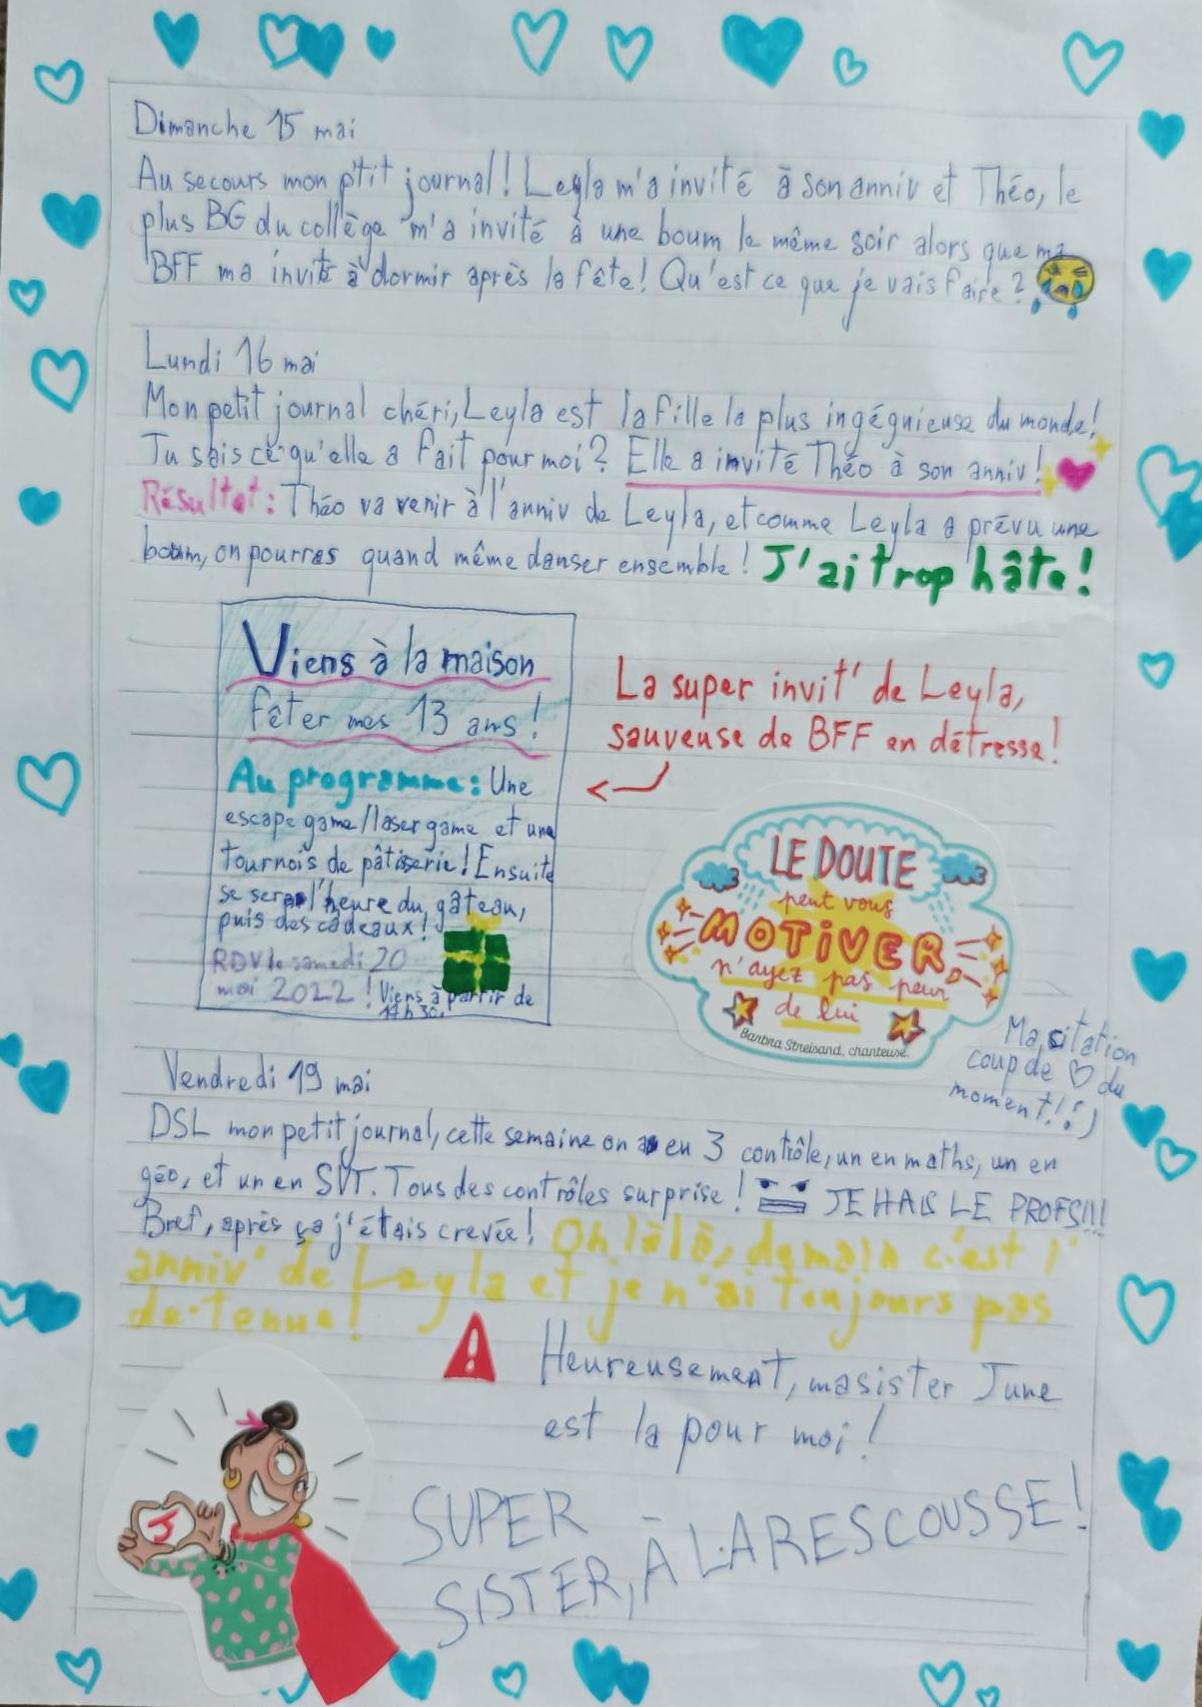 Dimanche 15 mai
Au secours mon p'tit journal! Leyla m'a invité à son anniv et Théo, le
plus BG du collège m'a invité à une boum le même soir alors que ma
BFF ma invité à dormir après la fête! Qu'est ce que je vais faire?
Lundi 16 mai
Mon petit journal chéri, Leyla est la fille la plus ingégnieuse du monde!
Tu sais ce qu'elle a fait pour moi? Elle a invité Théo à son anniv!
Résultat: Théo va venir à l'anniv de Leyla, et comme Leyla a prévu une
boum, on pourras quand même danser ensemble! J'ai trop hâte!
Viens à la maison
fêter mes 13 ans!
Au programme: Une
escape game/laser game et une
tournois de pâtisserie! Ensuite
se sera l'heure du gâteau,
puis des cadeaux!
RDV le samedi 20
mai 2022! Viens à partir de
17h30.
La super invit' de Leyla,
sauveuse de BFF en détresse!
LE DOUTE
peut vous
MOTIVER
n'ayez pas peur
de lui
Barbra Streisand, chanteuse.
Ma citation
coup de ♡ du
moment!! ;)
Vendredi 19 mai
DSL mon petit journal, cette semaine on a eu 3 contrôle, un en maths, un en
géo, et un en SVT. Tous des contrôles surprise! JE HAIS LE PROFS!!!
Bref, après ça j'étais crevée! Oh làlà, demain c'est l'
anniv' de Leyla et je n'ai toujours pas
de tenue!
! Heureusement, ma sister June
est la pour moi!
J
SUPER
SISTER, À LA RESCOUSSE!